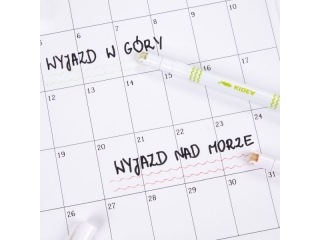 5 6 7 8
WYJAZD W GÓRY
12 13 14 15
KIDEA
19 20 21 22 23 24
WYJAZD NAD MORZE
26 27 28 29 30 31